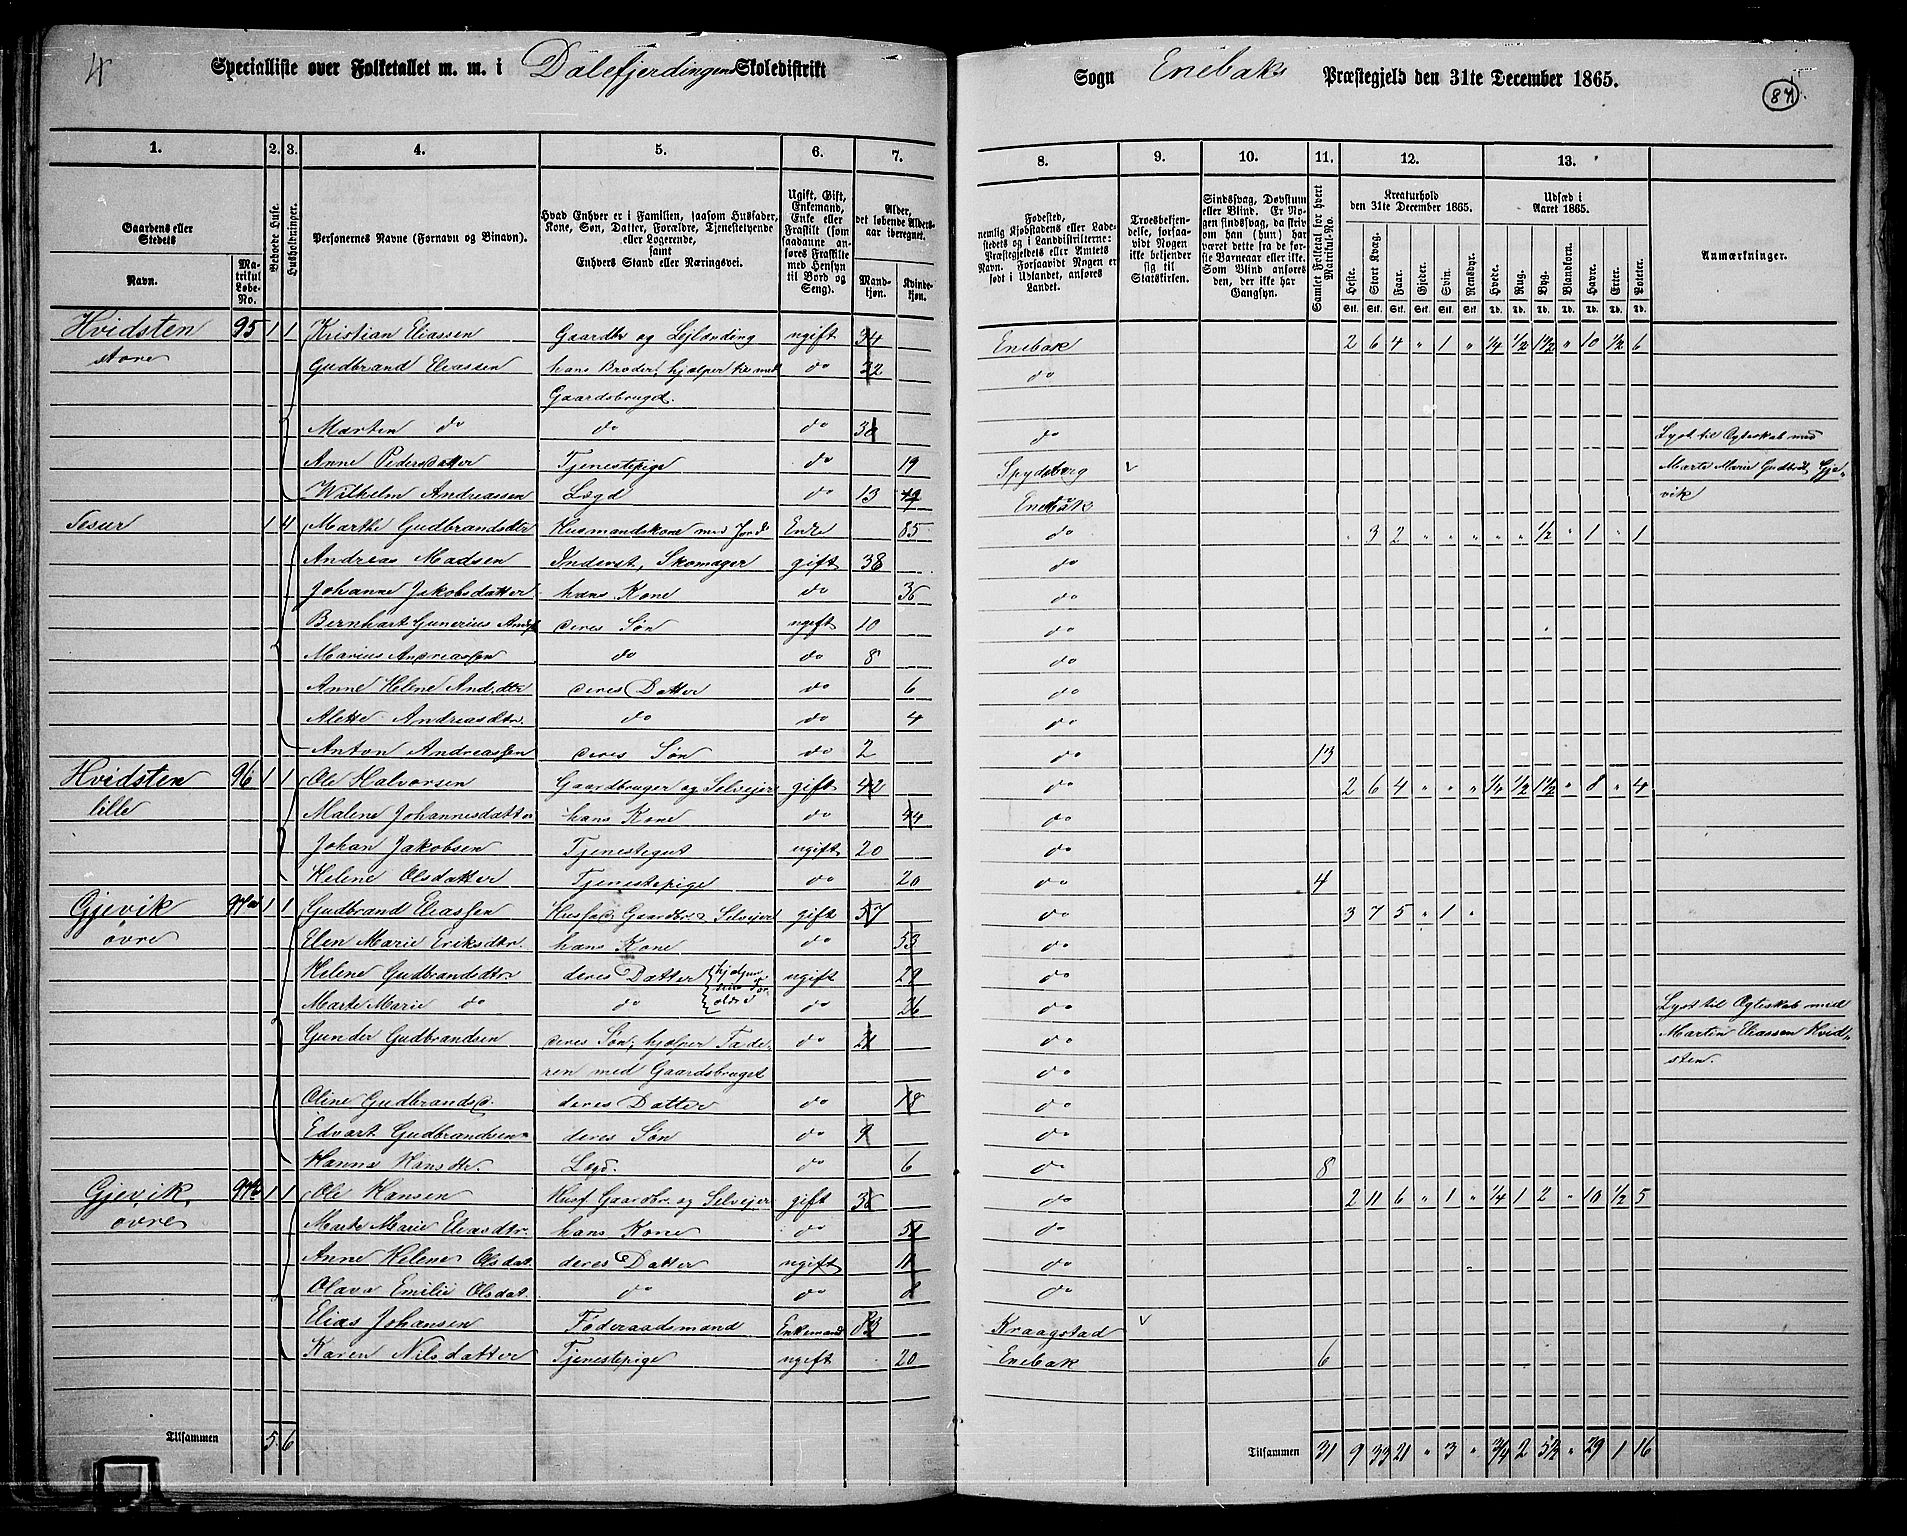 4
Specialliste over Folketallet m. m. i Dalefjerdingens Skoledistrikt
Sogn Enebaks Præstegjeld den 31te December 1865.
84
1. 2. 3. 4. 5. 6. 7. 8. 9. 10. 11. 12. 13.
Gaardens eller Stedets
Navn.
Matrikul Løbe-No.
Beboede Huse.
Husholdninger.
Personernes Navne (Fornavn og Binavn).
Hvad Enhver er i Familien, saasom Husfader, Kone, Søn, Datter, Forældre, Tjenestetyende eller Logerende, samt Enhvers Stand eller Næringsvei.
Ugift, Gift, Enkemand, Enke eller Fraskilt (som saadanne anføres Fraskilte med Hensyn til Bord og Seng).
Alder, det løbende Aldersaar iberegnet.
Mandkjøn. Kvindekjøn.
Fødested, nemlig Kjøbstadens eller Ladestedets og i Landdistrikterne: Præstegjeldets eller Amtets Navn. Forsaavidt Nogen er født i Udlandet, anføres Landet.
Troesbekjendelse, forsaavidt Nogen ikke bekjender sig til Statskirken.
Sindssvag, Døvstum eller Blind. Er Nogen sindssvag, da skriv om han (hun) har været dette fra de første Barneaar eller ikke. Som Blind anføres den, der ikke har Gangsyn.
Samlet Folketal for hvert Matrikul-No.
Kreaturhold den 31te December 1865.
Udsæd i Aaret 1865.
Heste. Stort Kvæg. Faar. Gjeder. Svin. Rensdyr. Hvede. Rug. Byg. Blandkorn. Havre. Erter. Poteter.
Stk. Stk. Stk. Stk. Stk. Stk. Td. Td. Td. Td. Td. Td. Td.
Anmærkninger.
Hvidsten 95 1 1 Kristian Eliassen Gaardbr og Lejlænding ugift 34 Enebak 2 6 4 " 1 " 1/4 1/2 1 1/2 " 10 1/2 6
store Gudbrand Eliassen hans Broder, hjælper til med do 32 do
Gaardsbrugd.
Marten do do do 30 do Lyst til Ægteskab med
Anne Pedersdatter Tjenestepige do 19 Spydeberg v Marte Marie Gudbrd. Gje-
Wilhelm Andreassen Lægd do 13 Enebak vik
1 4 Marthe Gudbrandsdtr Husmandskone med Jord Enke 85 do " 3 2 " " " " " 1/2 " 1 " 1
Andreas Madsen Inderst, Skomager gift 38 do
Johanne Jakobsdatter hans Kone do 36 do
Bernhart Gunerius deres Søn ugift 10 do
Marius Andreassen do do 8 do
Anne Helene And.dtr deres Datter do 6 do
Alette Andreasdtr. do do 4 do
Anton Andreassen deres Søn do 2 do 13
Hvidsten 96 1 1 Ole Halvorsen Gaardbruger og Selvejer gift 42 do 2 6 4 " " " 1/4 1/2 1 1/2 " 8 " 4
lille Malene Johannesdatter hans Kone do 44 do
Johan Jakobsen Tjenestegut ugift 20 do
Helene Olsdatter Tjenestepige do 20 do 4
Gjevik 97a 1 1 Gudbrand Eliassen Husfad Gaardbr. Selvejer gift 57 do 3 7 5 " 1 "
øvre Elen Marie Eriksdtr. hans Kone do 53 do
Helene Gudbrandsdtr. deres Datter hjælper ugift 29 do
Marte Marie do do do 26 do Lyst til Ægteskab med
Gunder Gudbrandsen deres Søn, hjælper Fade- do 21 do Martin Eliassen Hvid-
ren med Gaardsbruget do sten.
Oline Gudbrandsd. deres Datter do 18 do
Edvart Gudbrandsen deres Søn do 9 do
Hanna Hansdtr. Lægd. do 6 do 8
Gjevik, 97b 1 1 Ole Hansen Husf. Gaardbr. og Selvejer gift 36 do 2 11 6 " 1 " 1/4 1 2 " 10 1/2 5
øvre Marte Marie Eliasdtr. hans Kone do 51 do
Anne Helene Olsdat. deres Datter ugift 11 do
Olava Emilie Olsdat. do do do
Elias Johansen Føderaadsmand Enkemand 83 Kraagstad v
Karen Nilsdatter Tjenestepige ugift 20 Enebak 6
Tilsammen 5 6
Tilsammen 31 9 33 21 " 3 " 3/4 2 5 1/2 " 29 1 16